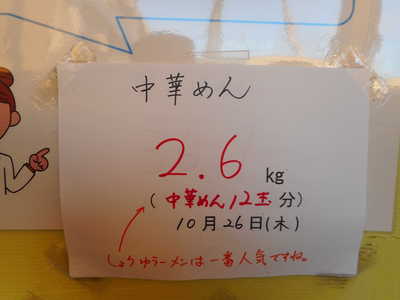 中華めん
2.6 kg
(中華めん12玉分)
10月26日(木)
しょうゆラーメンは一番人気ですね。